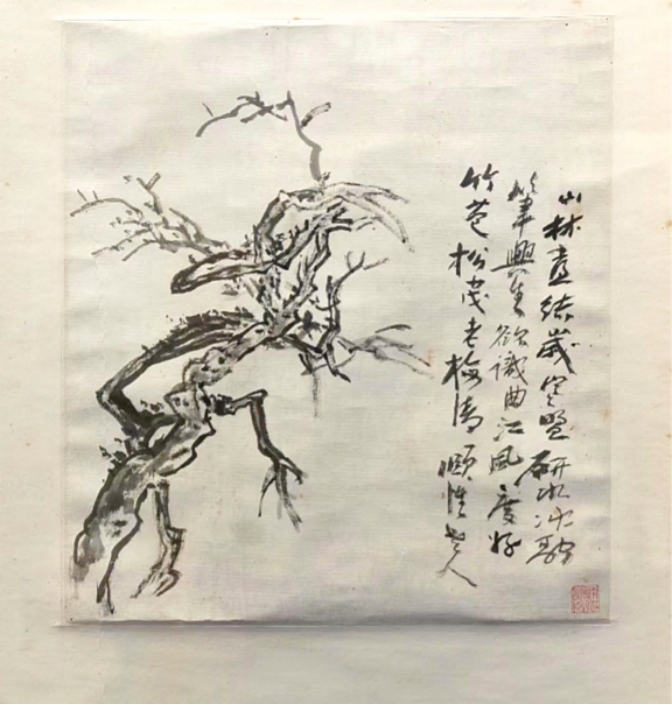 山林歲寒盟研水冰融
筆興生欲識曲江風度好
竹苞松茂老梅清頤性老人